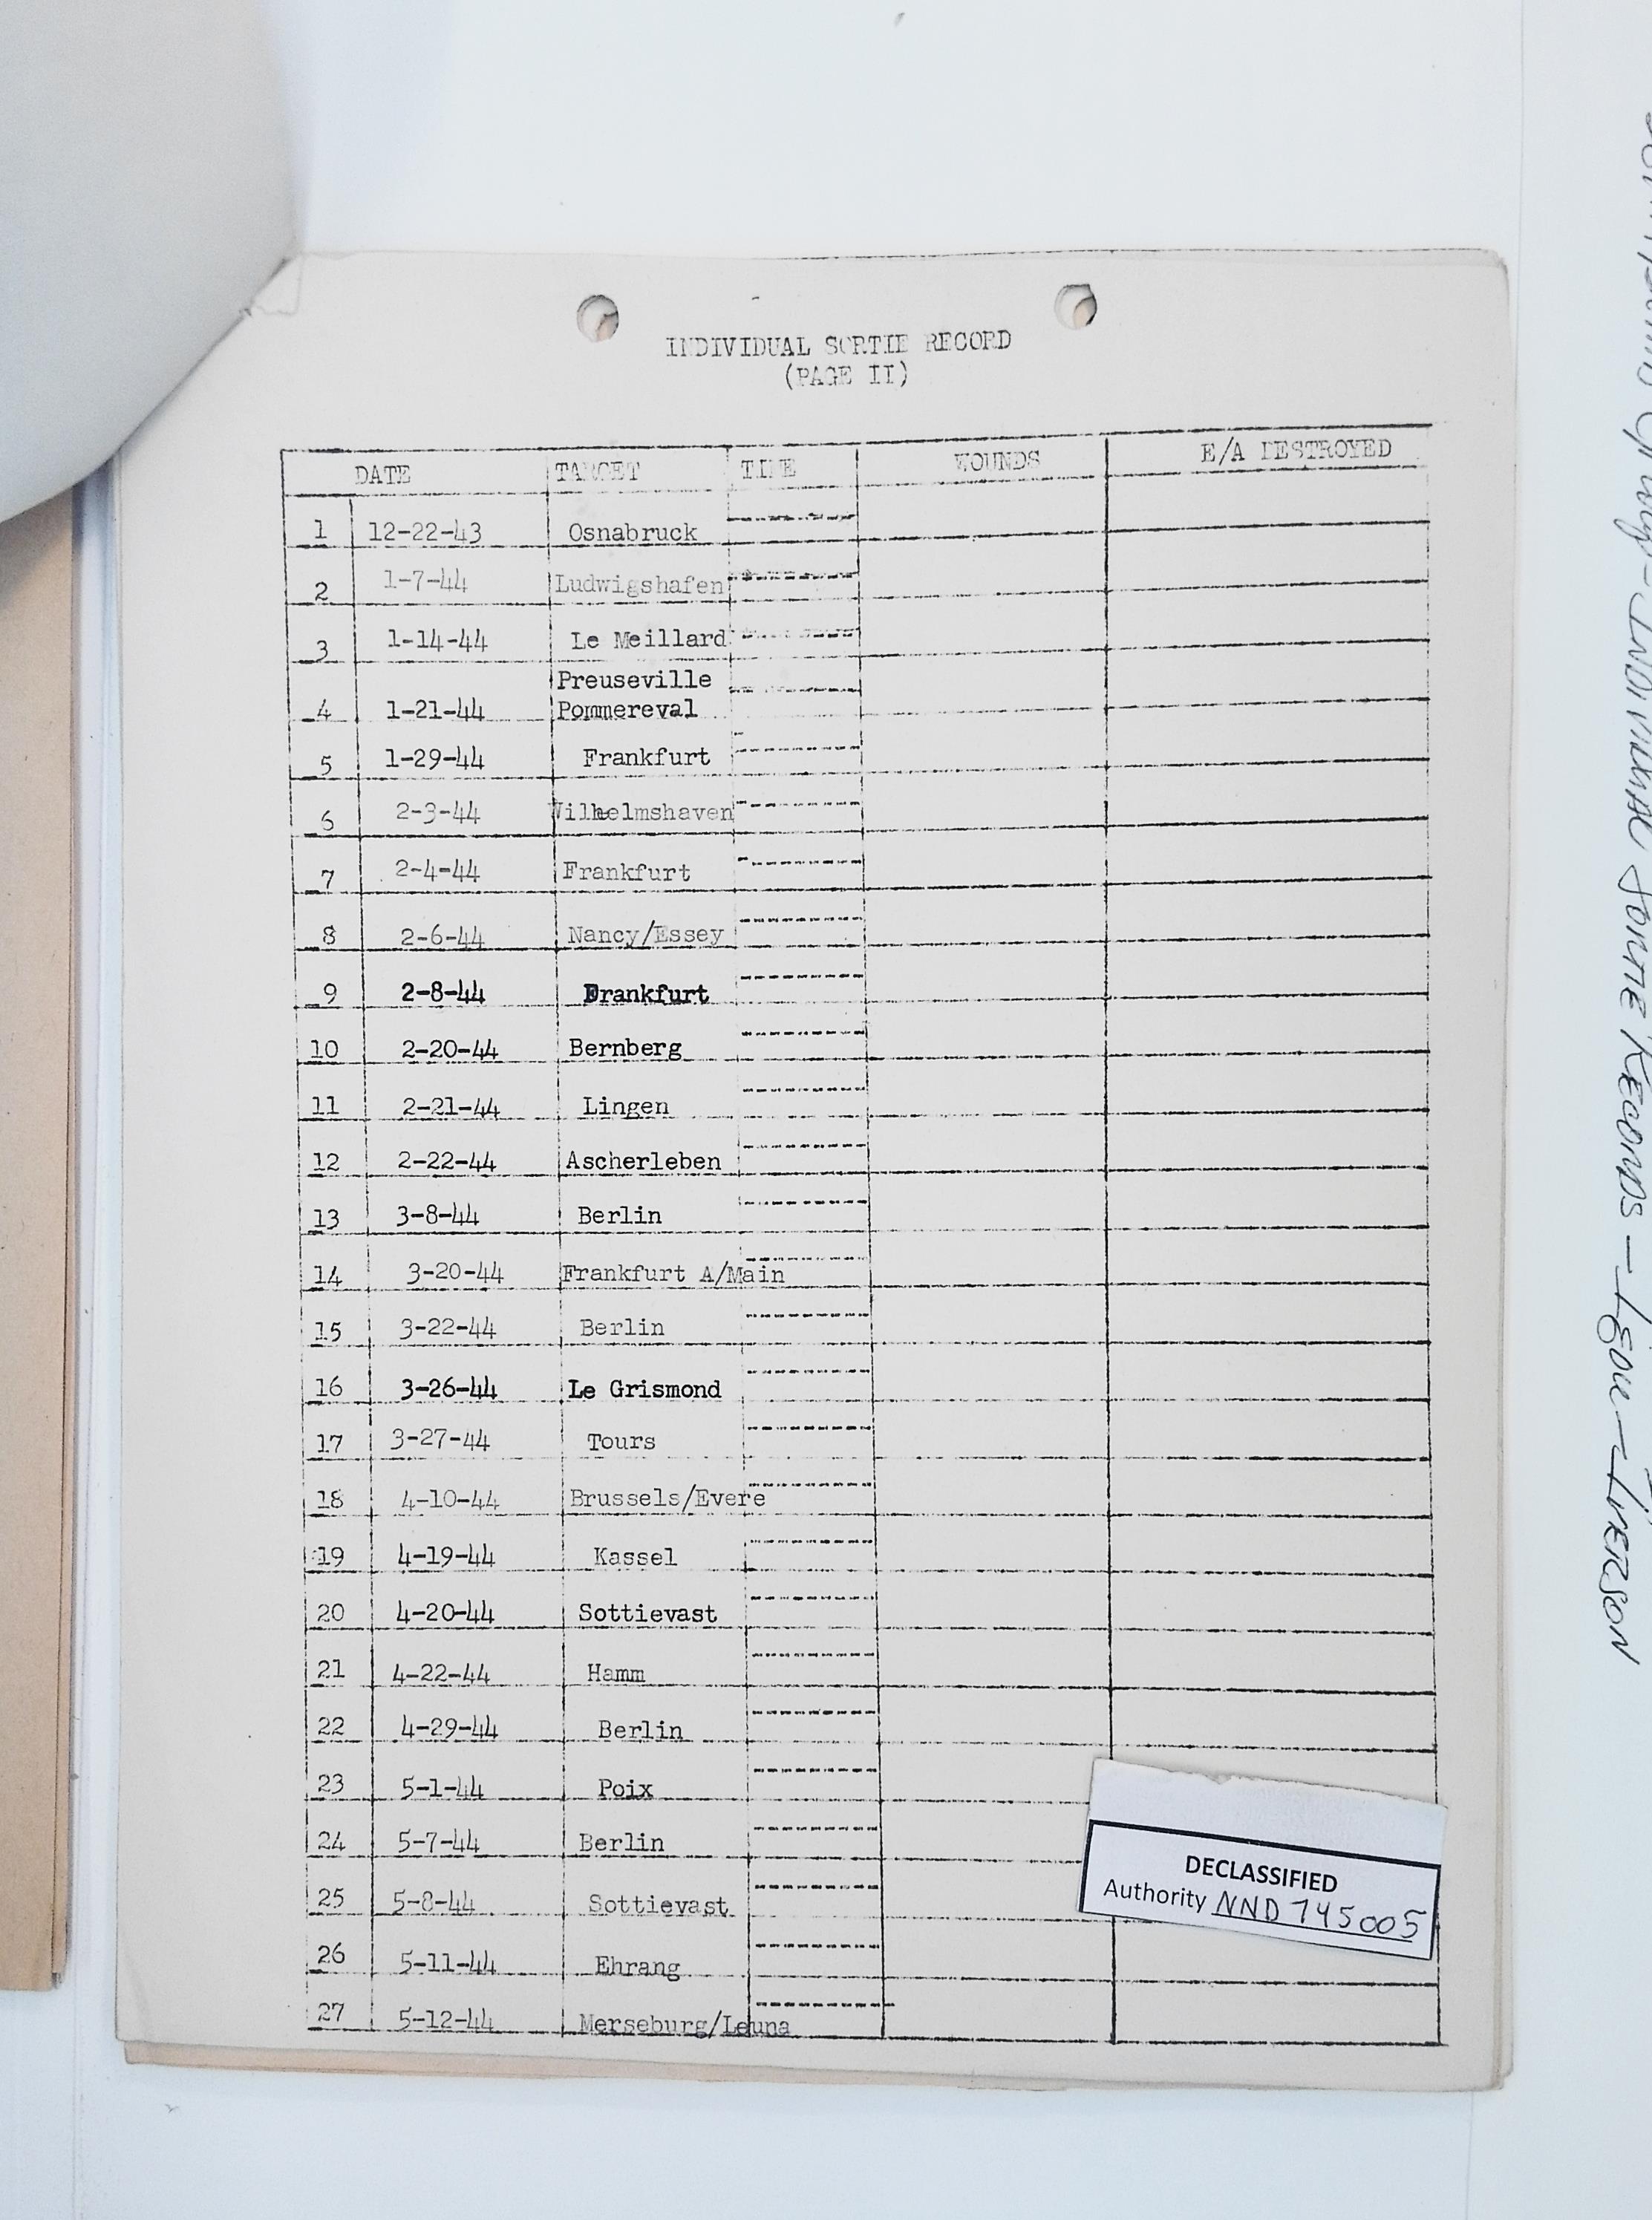 INDIVIDUAL SORTIE RECORD
(PAGE II)
DATE TARGET TIME WOUNDS E/A DESTROYED
1 12-22-43 Osnabruck
2 1-7-44 Ludwigshafen
3 1-14-44 Le Meillard
4 1-21-44 Preuseville
Pommereval
5 1-29-44 Frankfurt
6 2-3-44 Wilhelmshaven
7 2-4-44 Frankfurt
8 2-6-44 Nancy/Essey
9 2-8-44 Frankfurt
10 2-20-44 Bernberg
11 2-21-44 Lingen
12 2-22-44 Ascherleben
13 3-8-44 Berlin
14 3-20-44 Frankfurt A/Main
15 3-22-44 Berlin
16 3-26-44 Le Grismond
17 3-27-44 Tours
18 4-10-44 Brussels/Evere
19 4-19-44 Kassel
20 4-20-44 Sottievast
21 4-22-44 Hamm
22 4-29-44 Berlin
23 5-1-44 Poix
24 5-7-44 Berlin
25 5-8-44 Sottievast
26 5-11-44 Ehrang
27 5-12-44 Merseburg/Leuna
DECLASSIFIED
Authority NND 745005
Group - INDIVIDUAL SORTIE RECORDS -